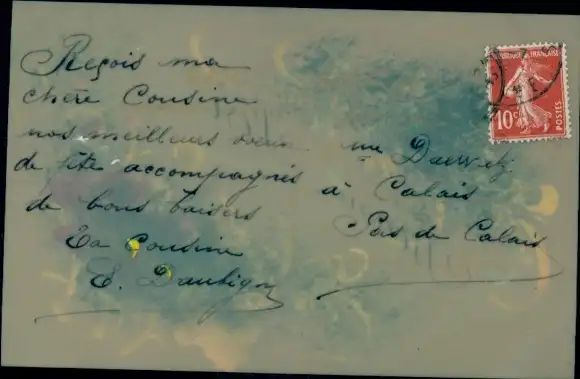 Reçois ma
chère Cousine
nos meilleures vœux
de fête accompagnés
de bons baisers
Ta Cousine
E. Daubigny
à Calais
Pas de Calais
RÉPUBLIQUE FRANÇAISE
10c
POSTES